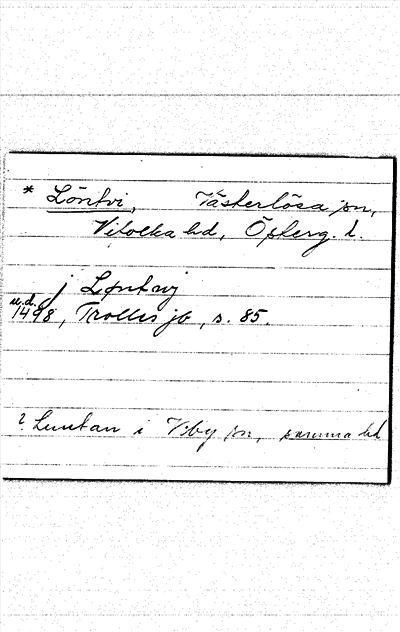 * Löntvi, Västerlösa sn,
Vifolka hd, Öfterg. l.
j Løntwj
u.d.
1498, Trolles jb, s. 85.
? Luntan i Viby sn, samma hd